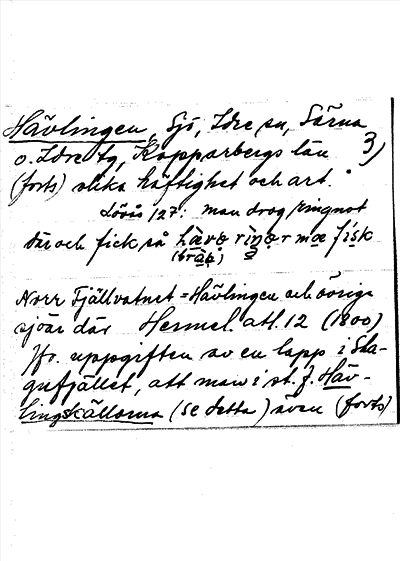 Hävlingen, sjö, Idre sn, Särna
o. Idre tg, Kopparbergs län 3)
(forts) olika häftighet och art."
Lövås 127: man drog ringnot
där och fick så hävə riŋər mæ fisk
(bråḍ)
Norr Fjällvatnet = Hävlingen och övriga
sjöar där Hermel. atl. 12 (1800)
Jfr. uppgiften av en lapp i Sta-
gufjället, att man i st. f. Häv-
lingskällorna (se detta) även (forts)